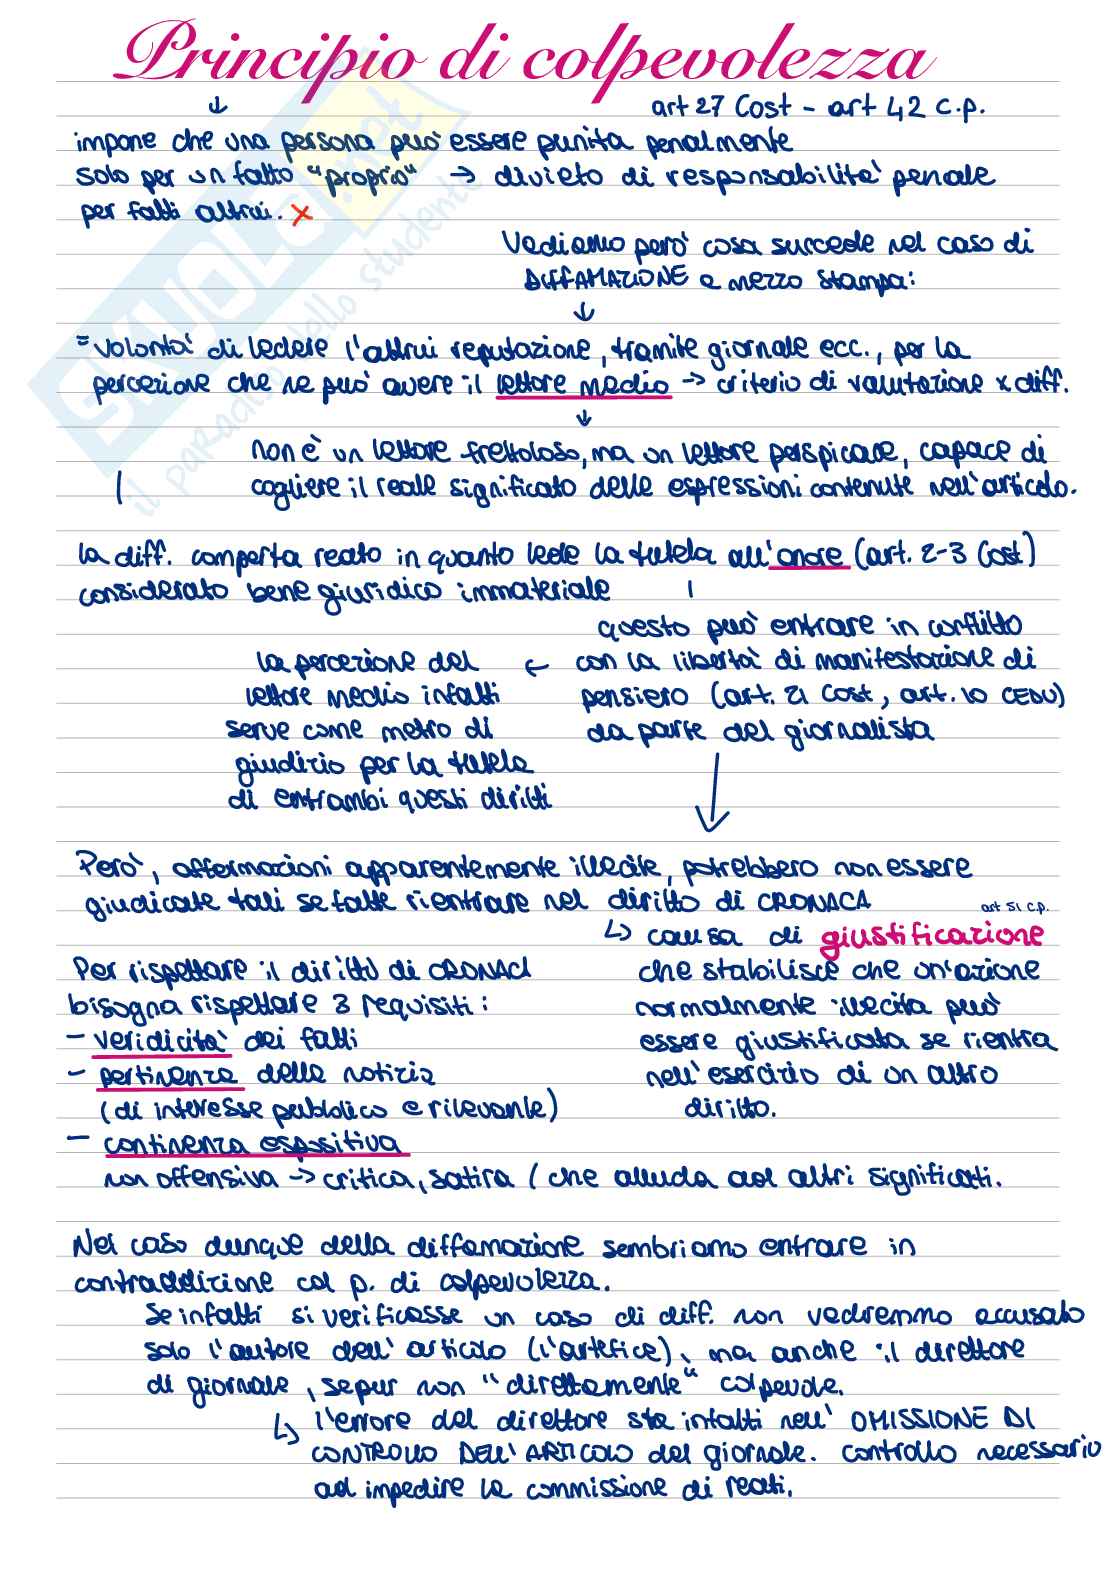 Principio di colpevolezza
art 27 Cost - art 42 c.p.
↓
impone che una persona può essere punita penalmente
solo per un fatto "proprio" → divieto di responsabilità penale
per fatti altrui. ×
Vediamo però cosa succede nel caso di
DIFFAMAZIONE a mezzo stampa:
↓
= volontà di ledere l'altrui reputazione, tramite giornale ecc., per la
percezione che ne può avere il lettore medio → criterio di valutazione x diff.
↓
non è un lettore frettoloso, ma un lettore perspicace, capace di
cogliere il reale significato delle espressioni contenute nell'articolo.
La diff. comporta reato in quanto lede la tutela all'onore (art. 2-3 Cost)
considerato bene giuridico immateriale
questo può entrare in conflitto
con la libertà di manifestazione di
pensiero (art. 21 Cost, art. 10 CEDU)
da parte del giornalista
←
la percezione del
lettore medio infatti
serve come metro di
giudizio per la tutela
di entrambi questi diritti
Però, affermazioni apparentemente illecite, potrebbero non essere
giudicate tali se fatte rientrare nel diritto di CRONACA
art 51 c.p.
↳ causa di giustificazione
che stabilisce che un'azione
normalmente illecita può
essere giustificata se rientra
nell'esercizio di un altro
diritto.
Per rispettare il diritto di CRONACA
bisogna rispettare 3 requisiti:
- veridicità dei fatti
- pertinenza della notizia
(di interesse pubblico e rilevante)
- continenza espositiva
non offensiva → critica, satira (che alluda ad altri significati.
Nel caso dunque della diffamazione sembriamo entrare in
contraddizione col p. di colpevolezza.
Se infatti si verificasse un caso di diff. non vedremmo accusato
solo l'autore dell'articolo (l'artefice), ma anche il direttore
di giornale, seppur non "direttamente" colpevole.
↳ l'errore del direttore sta infatti nell'OMISSIONE DI
CONTROLLO DELL'ARTICOLO del giornale. controllo necessario
ad impedire la commissione di reati.
SKUOLA.net
il paradiso dello studente